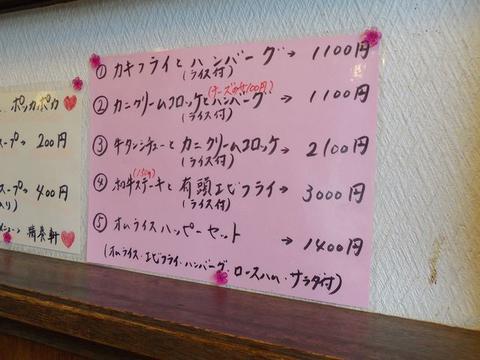 ポッカポカ
スープ→ 200円
スープ→ 400円
① カキフライとハンバーグ → 1100円
(ライス付)
(チーズのせ100円)
② カニクリームコロッケとハンバーグ → 1100円
(ライス付)
③ 牛タンシチューとカニクリームコロッケ→ 2100円
(ライス付)
(130g)
④ 和牛ステーキと有頭エビフライ→ 3000円
(ライス付)
⑤ オムライスハッピーセット → 1400円
(オムライス・エビフライ・ハンバーグ・ロースハム・サラダ付)